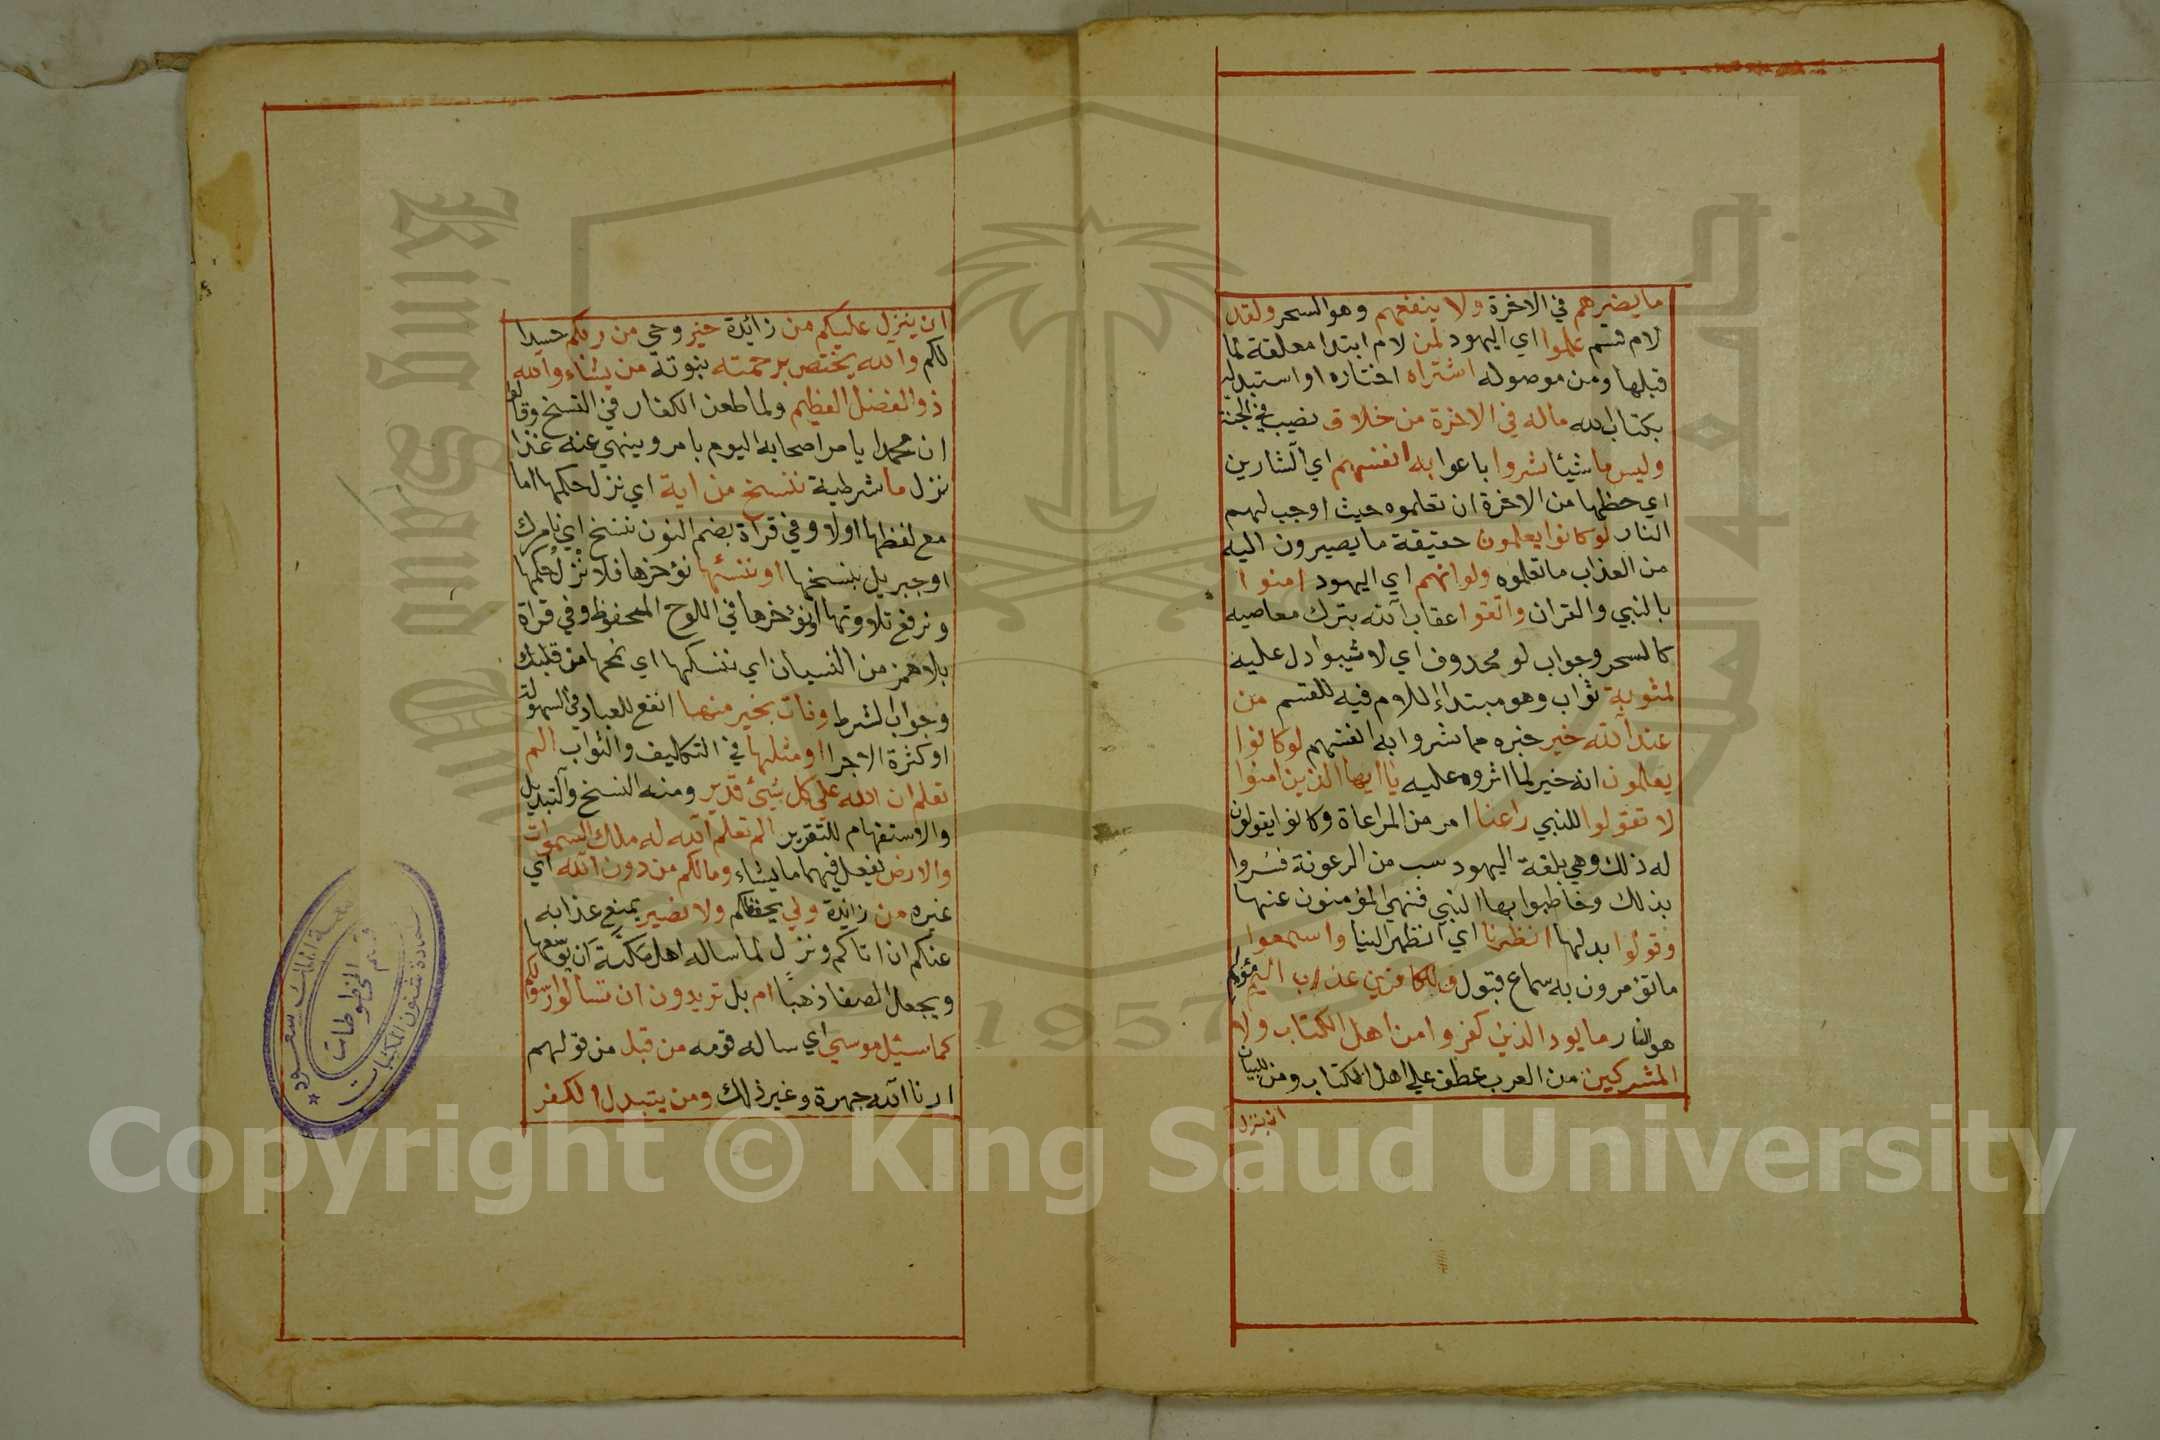 ما يضرهم في الاخرة ولا ينفعهم وهو السحر ولقد
لام قسم علموا اي اليهود لمن لام ابتدا معلقة لما
قبلها ومن موصوله اشتراه اختاره او استبدله
بكتاب الله ماله في الاخرة من خلاق نصيب في الجنة
وليس ما شيئا شروا باعوا به انفسهم اي الشارين
اي حظها من الاخرة ان تعلموه حيث اوجب لهم
النار لو كانوا يعلمون حقيقة ما يصيرون اليه
من العذاب ما تعلموه ولو انهم اي اليهود امنوا
بالنبي والقران واتقوا عقاب الله بترك معاصيه
كالسحر وجواب لو محذوف اي لاثيبوا دل عليه
لمثوبة ثواب وهو مبتدا اللام فيه للقسم من
عند الله خير خبره مما شروا به انفسهم لو كانوا
يعلمون انه خير لما اثروه عليه ياايها الذين امنوا
لا تقولوا للنبي راعنا امر من المراعاة وكانوا يقولون
له ذلك وهي بلغة اليهود سب من الرعونة فسروا
بذلك وخاطبوا بها النبي فنهي المؤمنون عنها
وقولوا بدلها انظرنا اي انظر الينا واسمعوا
ما تؤمرون به سماع قبول وللكافرين عذاب اليم مؤلم
هو النار ما يود الذين كفروا من اهل الكتاب ولا
المشركين من العرب عطف علي اهل الكتاب ومن للبيان
ان ينزل
ان ينزل عليكم من زائدة خير وحي من ربكم حسدا
لكم والله يختص برحمته نبوته من يشاء والله
ذو الفضل العظيم ولما طعن الكفار في النسخ وقالوا
ان محمدا يامر اصحابه اليوم بامر وينهي عنه غدا
نزل ما شرطية ننسخ من اية اي نزل حكمها اما
مع لفظها اولا وفي قراة بضم النون ننسخ اي نامرك
او جبريل بنسخها او ننسئها نؤخرها فلا نزل حكمها
ونرفع تلاوتها او نؤخرها في اللوح المحفوظ وفي قراة
بلا همز من النسيان اي ننسكها اي نمحها من قلبك
وجواب الشرط ونات بخير منها انفع للعباد في السهولة
او كثرة الاجر او مثلها في التكاليف والثواب الم
تعلم ان الله علي كل شيئ قدير ومنه النسخ والتبديل
والاستفهام للتقرير الم تعلم الله له ملك السموات
والارض يفعل فيهما ما يشاء ومالكم من دون الله اي
غيره من زائدة ولي يحفظكم ولا نصير يمنع عذابه
عنكم ان اتاكم ونزل لما ساله اهل مكة ان يوسعها
ويجعل الصفا ذهبا ام بل تريدون ان تسالوا رسولكم
كما سئل موسي اي ساله قومه من قبل من قولهم
ارنا الله جهرة وغير ذلك ومن يتبدل الكفر
جامعة الملك سعود
عمادة شئون المكتبات
قسم المخطوطات
King Saud University
جامعة الملك سعود
1957
Copyright © King Saud University